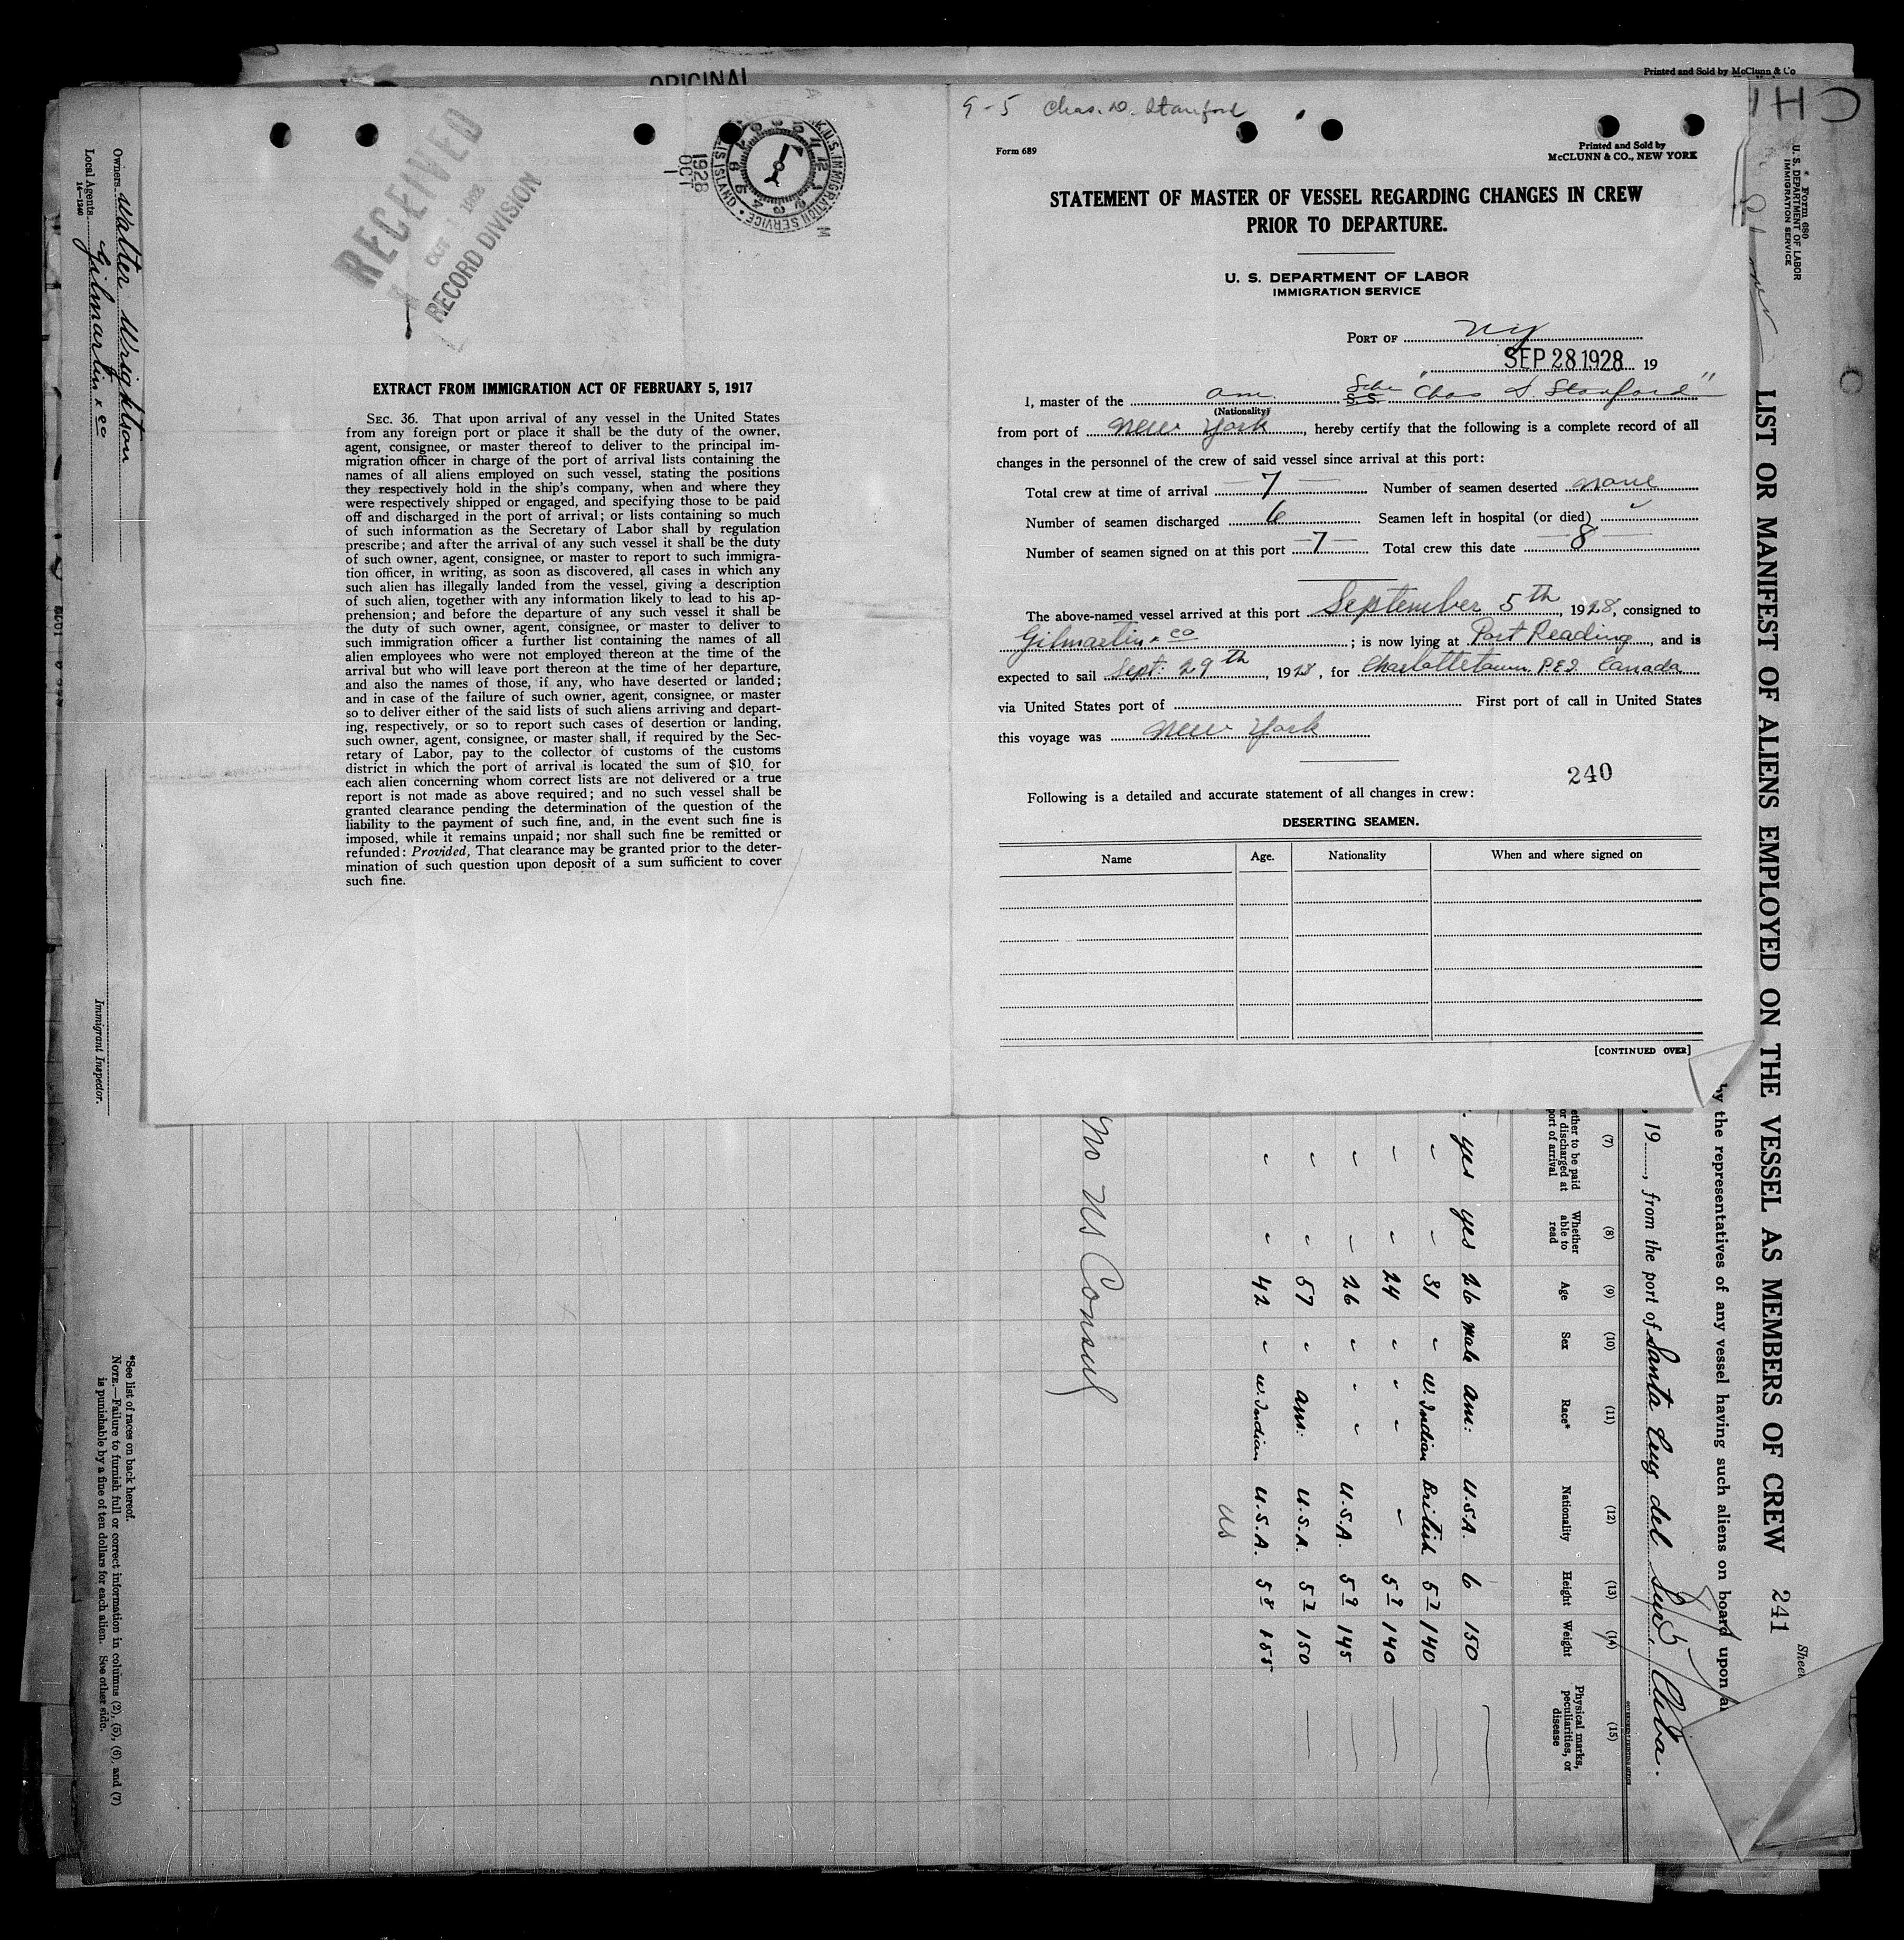 ORIGINAL
Printed and Sold by McClunn & Co
9-5 Chas. D. Stanford
Form 689
Printed and Sold by
McCLUNN & CO., NEW YORK
STATEMENT OF MASTER OF VESSEL REGARDING CHANGES IN CREW
PRIOR TO DEPARTURE.
U. S. DEPARTMENT OF LABOR
IMMIGRATION SERVICE
PORT OF NY
SEP 28 1928 19
I, master of the am. Schr S.S. "Chas D. Stanford"
(Nationality)
from port of New York, hereby certify that the following is a complete record of all
changes in the personnel of the crew of said vessel since arrival at this port:
Total crew at time of arrival 7 Number of seamen deserted none
Number of seamen discharged 6 Seamen left in hospital (or died)
Number of seamen signed on at this port 7 Total crew this date 8
The above-named vessel arrived at this port September 5th, 1928, consigned to
Gilmartin & Co; is now lying at Port Reading, and is
expected to sail Sept. 29th, 1928, for Charlottetown P.E.I. Canada
via United States port of First port of call in United States
this voyage was New York
240
Following is a detailed and accurate statement of all changes in crew:
DESERTING SEAMEN.
Name Age. Nationality When and where signed on
[CONTINUED OVER]
RECEIVED
OCT 1 1928
RECORD DIVISION
1928
OCT
1
U.S. IMMIGRATION SERVICE
EXTRACT FROM IMMIGRATION ACT OF FEBRUARY 5, 1917
SEC. 36. That upon arrival of any vessel in the United States
from any foreign port or place it shall be the duty of the owner,
agent, consignee, or master thereof to deliver to the principal im-
migration officer in charge of the port of arrival lists containing the
names of all aliens employed on such vessel, stating the positions
they respectively hold in the ship's company, when and where they
were respectively shipped or engaged, and specifying those to be paid
off and discharged in the port of arrival; or lists containing so much
of such information as the Secretary of Labor shall by regulation
prescribe; and after the arrival of any such vessel it shall be the duty
of such owner, agent, consignee, or master to report to such immigra-
tion officer, in writing, as soon as discovered, all cases in which any
such alien has illegally landed from the vessel, giving a description
of such alien, together with any information likely to lead to his ap-
prehension; and before the departure of any such vessel it shall be
the duty of such owner, agent, consignee, or master to deliver to
such immigration officer a further list containing the names of all
alien employees who were not employed thereon at the time of the
arrival but who will leave port thereon at the time of her departure,
and also the names of those, if any, who have deserted or landed;
and in case of the failure of such owner, agent, consignee, or master
so to deliver either of the said lists of such aliens arriving and depart-
ing, respectively, or so to report such cases of desertion or landing,
such owner, agent, consignee, or master shall, if required by the Sec-
retary of Labor, pay to the collector of customs of the customs
district in which the port of arrival is located the sum of $10 for
each alien concerning whom correct lists are not delivered or a true
report is not made as above required; and no such vessel shall be
granted clearance pending the determination of the question of the
liability to the payment of such fine, and, in the event such fine is
imposed, while it remains unpaid; nor shall such fine be remitted or
refunded: Provided, That clearance may be granted prior to the deter-
mination of such question upon deposit of a sum sufficient to cover
such fine.
Form 680
U. S. DEPARTMENT OF LABOR
IMMIGRATION SERVICE
LIST OR MANIFEST OF ALIENS EMPLOYED ON THE VESSEL AS MEMBERS OF CREW 241
Sheet
by the representatives of any vessel having such aliens on board upon
, 19, from the port of Santa Cruz del Sur, Cuba.
(7) (8) (9) (10) (11) (12) (13) (14) (15)
ether to be paid or discharged at port of arrival Whether able to read Age Sex Race* Nationality Height Weight Physical marks, peculiarities, or disease
yes yes 26 male am: U.S.A. 6 150
" " 31 " W. Indian British 5 7 140
" " 24 " " " 5 9 140
" " 26 " " U.S.A. 5 9 145
" " 57 " am: U.S.A. 5 7 150
" " 42 " W. Indian U.S.A. 5 8 155
US
No US Consul
Owners Walter Wrightson
Local Agents Gilmartin & Co
14-1240
Immigrant Inspector.
*See list of races on back hereof.
NOTE.—Failure to furnish full or correct information in columns (2), (5), (6), and (7)
is punishable by a fine of ten dollars for each alien. See other side.